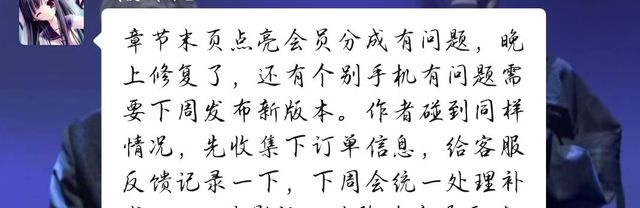 章节末页点亮会员分成有问题，晚
上修复了，还有个别手机有问题需
要下周发布新版本。作者碰到同样
情况，先收集下订单信息，给客服
反馈记录一下，下周会统一处理补